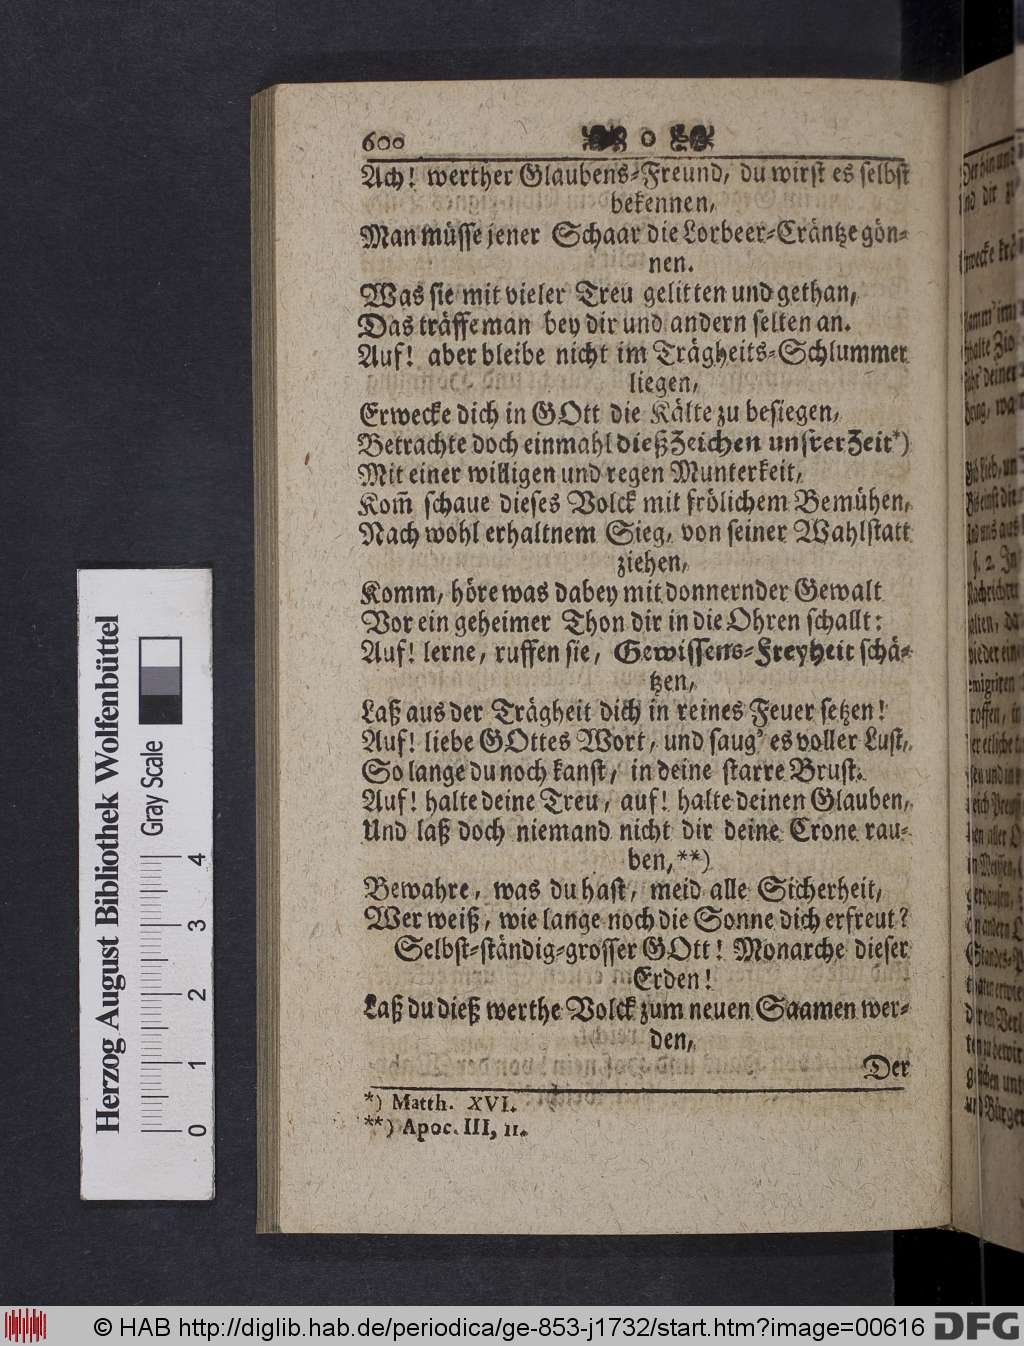 600
Ach! werther Glaubens-Freund, du wirst es selbst
bekennen,
Man müsse jener Schaar die Lorbeer-Cräntze gön-
nen.
Was sie mit vieler Treu gelitten und gethan,
Das träffe man bey dir und andern selten an.
Auf! aber bleibe nicht im Trägheits-Schlummer
liegen,
Erwecke dich in GOtt die Kälte zu besiegen,
Betrachte doch einmahl dieß Zeichen unsrer Zeit*)
Mit einer willigen und regen Munterkeit,
Kom̃ schaue dieses Volck mit frölichem Bemühen,
Nach wohl erhaltnem Sieg, von seiner Wahlstatt
ziehen,
Komm, höre was dabey mit donnernder Gewalt
Vor ein geheimer Thon dir in die Ohren schallt:
Auf! lerne, ruffen sie, Gewissens-Freyheit schä-
tzen,
Laß aus der Trägheit dich in reines Feuer setzen!
Auf! liebe GOttes Wort, und saug' es voller Lust,
So lange du noch kanst, in deine starre Brust.
Auf! halte deine Treu, auf! halte deinen Glauben,
Und laß doch niemand nicht dir deine Crone rau-
ben, **)
Bewahre, was du hast, meid alle Sicherheit,
Wer weiß, wie lange noch die Sonne dich erfreut?
Selbst-ständig-grosser GOtt! Monarche dieser
Erden!
Laß du dieß werthe Volck zum neuen Saamen wer-
den,
Der
*) Matth. XVI.
**) Apoc. III, 11.
Herzog August Bibliothek Wolfenbüttel
Gray Scale
0 1 2 3 4
© HAB http://diglib.hab.de/periodica/ge-853-j1732/start.htm?image=00616
DFG